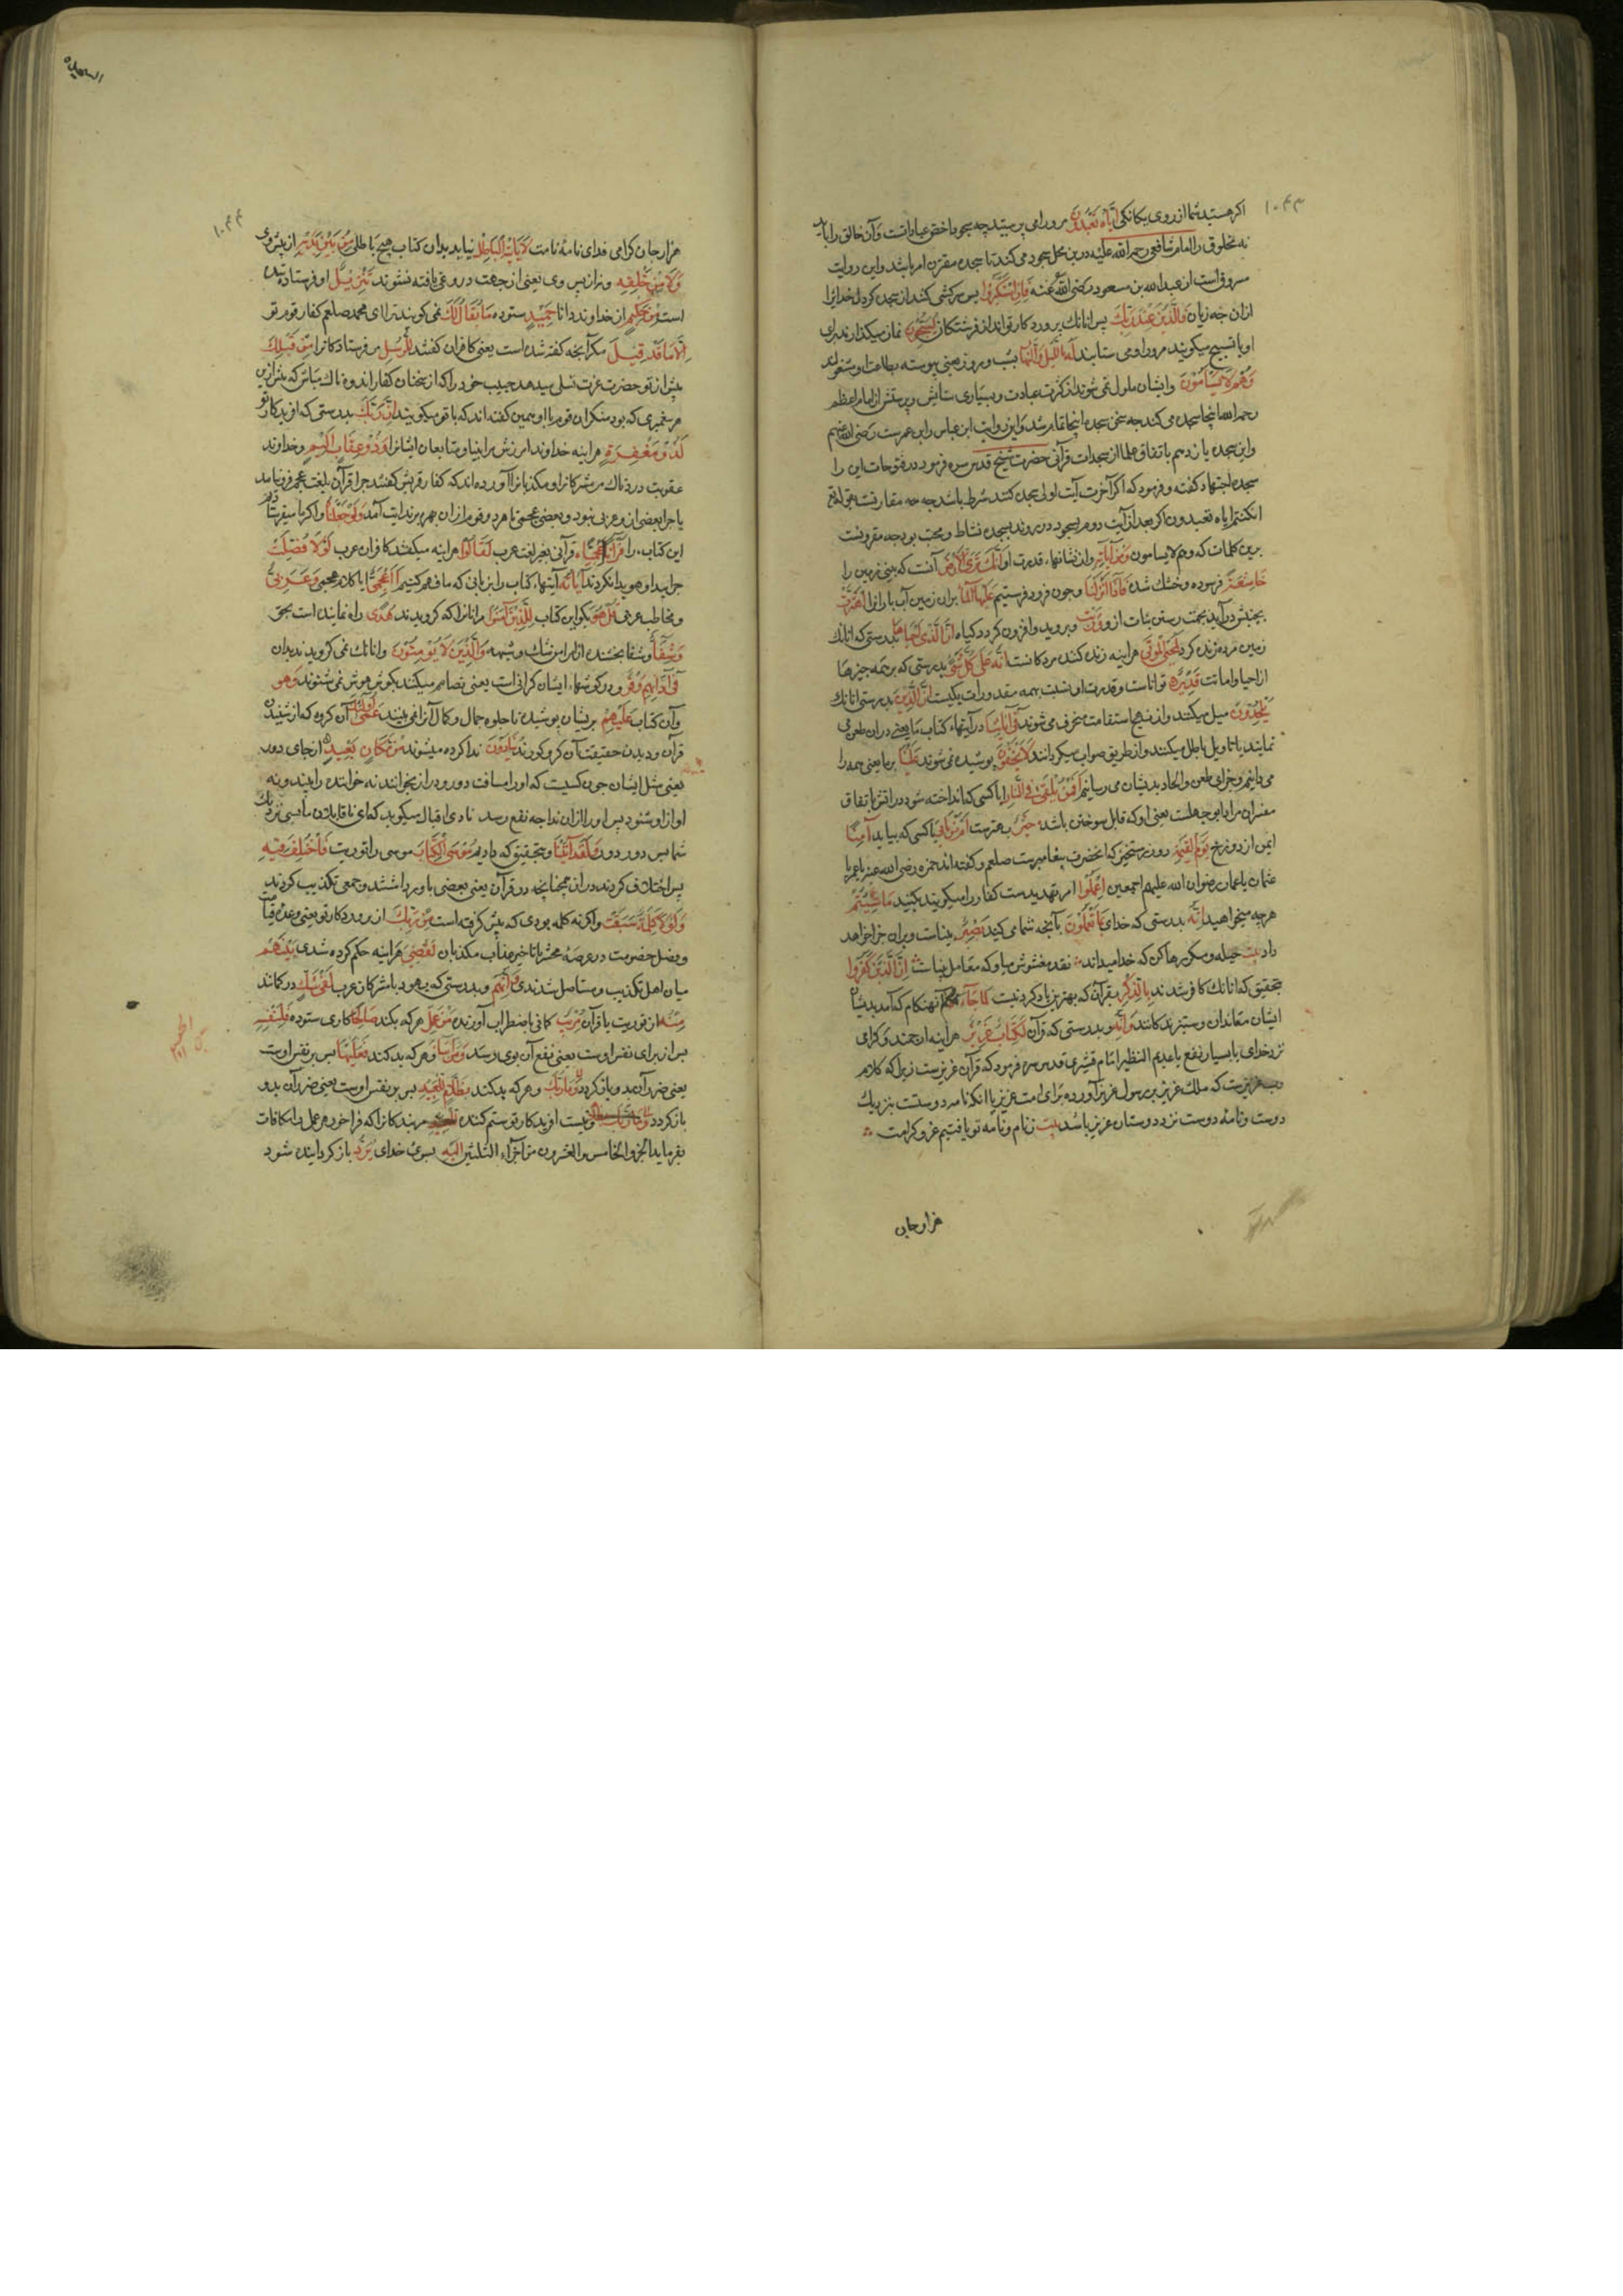 ۱۰۴۳
اکر هستید شما از روی یکانکی اِیّاهُ تَعْبُدُونَ مرورا می پرستید چه سجود اخص عباداتست وآن خالق را باید
نه مخلوق را امام شافعی رحمة الله علیه درین محل سجود می کند تا سجده مقترن امر باشد واین روایت
مسروق است از عبد الله بن مسعود رضی الله عنه فَاِنِ اسْتَکْبَرُوا پس اکر سرکشی کنند از سجده کردن خدایرا
ازان چه زیان فَالَّذِینَ عِنْدَ رَبِّكَ پس انانك نزد پروردکار تواند از فرشتکان یُسَبِّحُونَ نماز میکذارند برای
او یا تسبیح میکویند مرورا ومی ستایند لَهُ بِاللَّیْلِ وَالنَّهَارِ بشب و روز یعنی پیوسته بطاعت او مشغولند
وَهُمْ لَا یَسْأَمُونَ وایشان ملول نمی شوند از کثرت عبادت و بسیاری ستایش و پرستش امام اعظم
رحمه الله اینجا سجده می کند چه سخن سجده اینجا تمام شد واین روایت ابن عباس وابن عمرست رضی الله عنهم
واین سجده یازدهم باتفاق علما از سجدات قرآنی حضرت شیخ قدس سره در فتوحات این را
سجده اجتهاد کفته و فرموده که اکر آخرت آیت اولی سجده کنند شرط باشد چه مقارنست بقوله ان
کنتم ایاه تعبدون اکر بعد از آیت دوم بسجود در روند سجده نشاط و محبت بود چه مقرونست
برین کلمات که وهم لا یسامون وَمِنْ آیَاتِهِ واز نشانهاء قدرت او اَنَّكَ تَرَی الْاَرْضَ آنست که بینی زمین را
خَاشِعَةً فرسوده وخشك شده فَاِذَا اَنْزَلْنَا وچون فرود فرستیم عَلَیْهَا الْمَاءَ بران زمین آب باران را اهْتَزَّتْ
بجنبش در آید بجهت رستن نبات ازو وَرَبَتْ و بروید وافزون کردد کیاه اِنَّ الَّذِی اَحْیَاهَا بدرستی که انانك
زمین مرده زنده کرد لَمُحْیِ الْمَوْتَی هراینه زنده کننده مردکانست اِنَّهُ عَلَی کُلِّ شَیْءٍ بدرستی که بر همه چیزها
از احیا و اماتت قَدِیرٌ توانا ست و قدرت او نسبت بهمه مقدورات یکیست اِنَّ الَّذِینَ بدرستی انانك
یُلْحِدُونَ میل میکنند واز نهج استقامت منحرف می شوند فِی آیَاتِنَا در آیتهاء کتاب ما یعنی دران طعن می
نمایند یا تاویل باطل میکنند واز طریق صواب میکردانند لَا یَخْفَوْنَ پوشیده نمی شوند عَلَیْنَا بر ما یعنی همه را
می دانیم وجزای طعن والحاد بدیشان می رسانیم اَفَمَنْ یُلْقَی فِی النَّارِ ایا کسی که انداخته شود در اتش باتفاق
مفسران مراد ابو جهلست یعنی او که قابل سوختن باشد خَیْرٌ بهترست اَمْ مَنْ یَأْتِی یا کسی که بیاید آمِنًا
ایمن از دوزخ یَوْمَ الْقِیَمَةِ روز رستخیز که انحضرت پیغامبرست صلعم وکفته اند حمزه رضی الله عنه یا عمر یا
عثمان یا عمار رضوان الله علیهم اجمعین اِعْمَلُوا امر تهدیدست کفار را میکوید بکنید مَا شِئْتُمْ
هرچه میخواهید اِنَّهُ بدرستی که خدای بِمَا تَعْمَلُونَ بآنچه شما می کنید بَصِیرٌ بیناست وبران جزا خواهد
داد بیت حیله و مکر رها کن که خدا میداند نقد مغشوش میاور که معامل بیناست اِنَّ الَّذِینَ کَفَرُوا
بتحقیق که انانك کافر شدند بِالذِّکْرِ بقرآن که بهترین یاد کردنیست لَمَّا جَاءَهُمْ آنهنکام که آمد بدیشان
ایشان معاندان و ستیزندکانند وَاِنَّهُ و بدرستی که قرآن لَکِتَابٌ عَزِیزٌ هراینه ارجمند وکرامی
نزد خدای یا بسیار نفع یا عدیم النظیر امام قشیری قدس سره فرمود که قرآن عزیزست زیرا که کلام
رب عزیزست که ملك عزیز بر رسول عزیز آورده برای امت عزیز یا انکه نامه دوستست بنزدیك
دوست ونامهٔ دوست نزد دوستان عزیز باشد بیت ز نام و نامهٔ تو یافتیم عز و کرامت
هزار جان
۱۰۴۴
هزار جان کرامی فدای نامه ونامت لَا یَأْتِیهِ الْبَاطِلُ نیاید بدان کتاب هیچ باطلی مِنْ بَیْنِ یَدَیْهِ از پیش وی
وَلَا مِنْ خَلْفِهِ ونه از پس وی یعنی از هیچ جهت دروغی یافته نشود تَنْزِیلٌ او فرستاده شده
است مِنْ حَکِیمٍ از خداوند دانا حَمِیدٍ ستوده مَا یُقَالُ لَكَ نمی کویند ترا ای محمد صلعم کفار قوم تو
اِلَّا مَا قَدْ قِیلَ مکر آنچه کفته شده است یعنی کافران کفتند لِلرُّسُلِ مر فرستادکان را مِنْ قَبْلِكَ
پیش از تو حضرت عزت تسلی میدهد حبیب خود را که از سخنان کفار اندوهناك مباش که پیش از تو
هر پیغمبری که بود منکران قوم با او همین کفته اند که با تو میکویند اِنَّ رَبَّكَ بدرستی که افریدکار تو
لَذُو مَغْفِرَةٍ هراینه خداوند امرزش مر انبیا ومتابعان ایشان را وَذُو عِقَابٍ اَلِیمٍ وخداوند
عقوبت دردناك مر مشرکان را ومکذبان را آورده اند که کفار قریش کفتند چرا قرآن بلغت عجم فرو نیامد
یا چرا بعضی ازو عربی نبود و بعضی عجمی تا هر دو قوم ازان بهره برند ایت آمد وَلَوْ جَعَلْنَاهُ واکر ما میفرستادیم
این کتاب را قُرْآنًا اَعْجَمِیًّا قرآنی بغیر لغت عرب لَقَالُوا هراینه میکفتند کافران عرب لَوْلَا فُصِّلَتْ
چرا پیدا وهویدا نکردند آیَاتُهُ آیتهاء کتاب را بزبانی که ما فهم کنیم ءَاَعْجَمِیٌّ ایا کلام عجمی وَعَرَبِیٌّ
ومخاطب عربی قُلْ هُوَ بکو این کتاب لِلَّذِینَ آمَنُوا مر انانرا که کرویدند هُدًی راه نماینده است بحق
وَشِفَاءٌ وشفا بخشنده از امراض شك وشبهه وَالَّذِینَ لَا یُؤْمِنُونَ وانانك نمی کروند بدان
فِی آذَانِهِمْ وَقْرٌ در کوشهاء ایشان کرانی است یعنی تصامم میکنند بکوش هوش نمی شنوند وَهُوَ
وآن کتاب عَلَیْهِمْ بریشان پوشیده تا جلوه جمال وکمال آنرا نمی بینند عَمًی اُولَئِكَ آن کروه که از شنیدن
قرآن و دیدن حقیقتت آن کر وکورند یُنَادَوْنَ ندا کرده میشوند مِنْ مَکَانٍ بَعِیدٍ از جای دور
یعنی مثل ایشان چون کسیست که او را مسافت دور و دراز بخوانند نه خواننده را بیند ونه
آواز او شنود پس او را ازان ندا چه نفع رسد
شما بس دور دور وَلَقَدْ آتَیْنَا وبتحقیق که دادیم مُوسَی الْکِتَابَ موسی را توریت فَاخْتُلِفَ فِیهِ
پس اختلاف کردند دران همچنانچه در قرآن یعنی بعضی باور داشتند و جمعی تکذیب کردند
وَلَوْلَا کَلِمَةٌ سَبَقَتْ واکر نه کلمه بودی که پیش کرفته است مِنْ رَبِّكَ از پروردکار تو یعنی وعده قیامت
وفصل خصومت در عرصهٔ محشر یا تاخیر عذاب مکذبان لَقُضِیَ هراینه حکم کرده شدی بَیْنَهُمْ
میان اهل تکذیب و مستاصل شدندی وَاِنَّهُمْ و بدرستی که یهود یا مشرکان عرب لَفِی شَكٍّ در کمانند
مِنْهُ از توریت یا قرآن مُرِیبٍ کمانی باضطراب آورنده مَنْ عَمِلَ هر که بکند صَالِحًا کاری ستوده فَلِنَفْسِهِ
پس از برای نفس اوست یعنی نفع آن بوی رسد وَمَنْ اَسَاءَ وهر که بد کند فَعَلَیْهَا پس بر نفس اوست
یعنی ضرر آن بدو باز کردد وَمَا رَبُّكَ وهر که بد کند بِظَلَّامٍ لِلْعَبِیدِ پس بر نفس اوست یعنی ضرر آن بدو
باز کردد ونیست افریدکار تو ستم کننده مر بندکانرا که فراخور هر عمل مکافات
بفرماید الجزو الخامس والعشرون من اجزاء الثلثین اِلَیْهِ بسوی خدای یُرَدُّ باز کردانیده شود